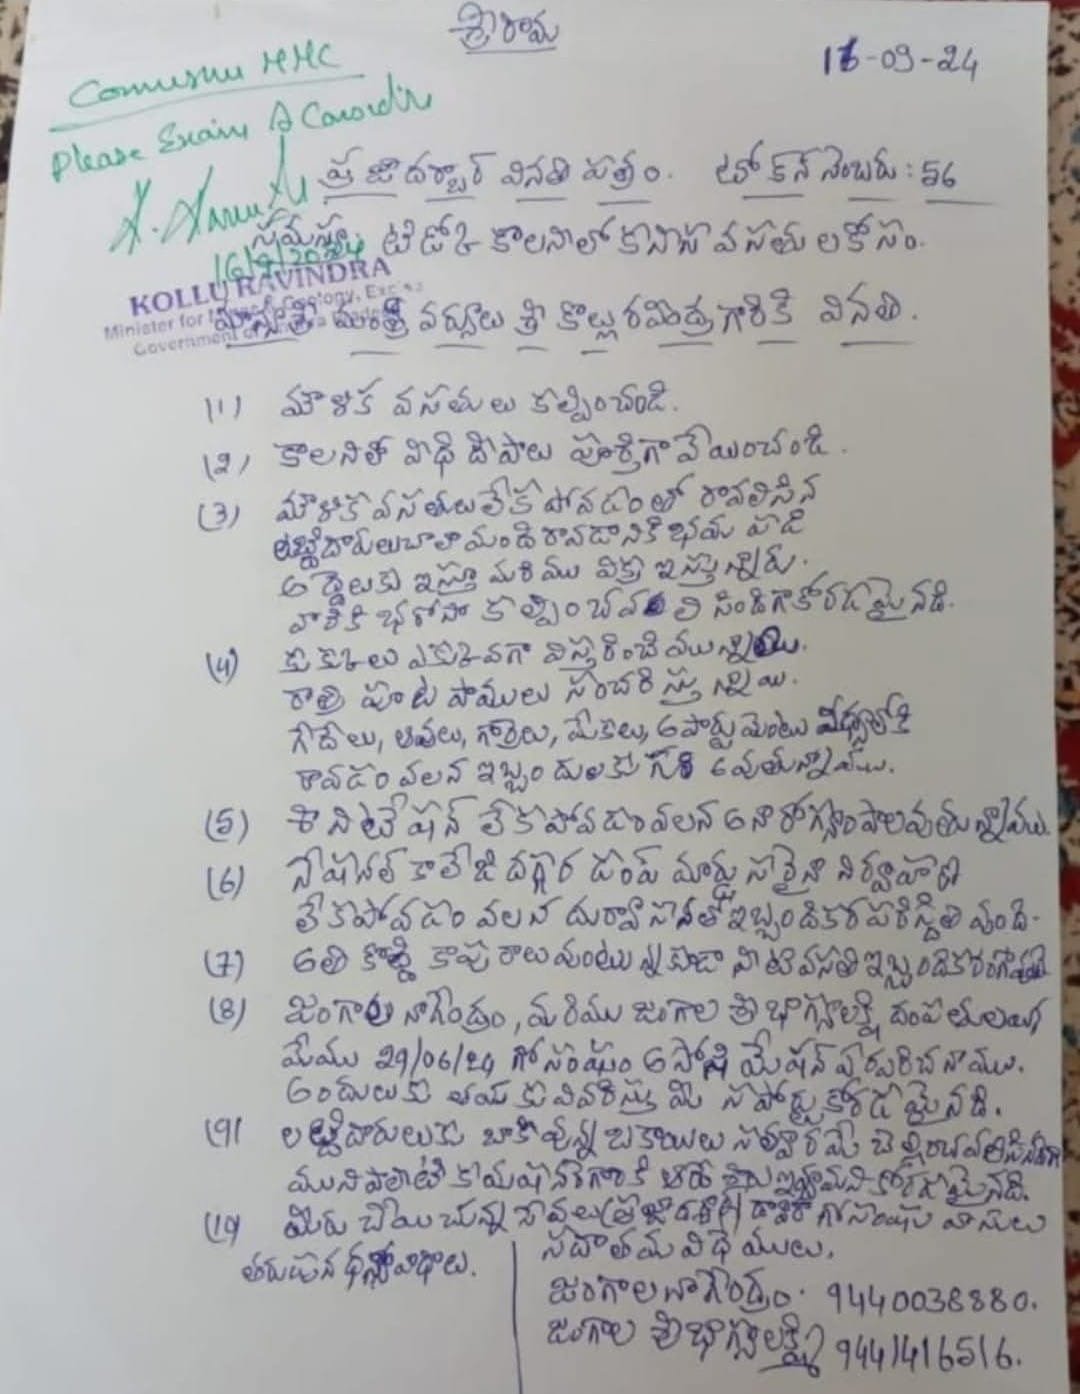 శ్రీరామ
16-09-24
Please Exam & Consider
16/9/2024
KOLLU RAVINDRA
Minister for Geology, Exc
Government of
ప్రజాదర్బార్ వినతి పత్రం. టోకెన్ నెంబరు : 56
సమస్య: టిడ్కో కాలనీలో కనీస వసతులకోసం.
మంత్రి వర్యులు శ్రీ కొల్లు రవీంద్ర గారికి వినతి.
(1) మౌళిక వసతులు కల్పించండి.
(2) కాలనిలో విధి దీపాలు పూర్తిగా వేయించండి.
(3) మౌళిక వసతులు లేక పోవడంతో రావలిసిన
లబ్ధిదారులు చాలా మంది రావడానికి భయ పడి
అద్దెలకు ఇస్తూ మరిము విక్ర ఇస్తున్నారు.
వారికి భరోసా కల్పించవలసిందిగా కోరడమైనది.
(4) కుక్కలు ఎక్కువగా విస్తరించి వున్నాయి.
రాత్రి పూట పాములు సంచరిస్తున్నాయి.
గేదేలు, ఆవులు, గొర్రెలు, మేకలు, అపార్టుమెంటు వీధ్దులోకి
రావడం వలన ఇబ్బందులకు గురి అవుతున్నాము.
(5) శానిటేషన్ లేకపోవడం వలన అనారోగ్యంపాలవుతున్నాము.
(6) నేషనల్ కాలేజి దగ్గర డంప్ యార్డు సరైన నిర్వాహణ
లేకపోవడం వలన దుర్వాసనతో ఇబ్బందికర పరిస్థితి వుంది.
(7) అతి కొద్ది కాపురాలు వుంటున్న కుడా నీటి వసతి ఇబ్బందికరంగా
(8) జంగాల నాగేంద్రం, మరిము జంగాల శ్రీ భాగ్యలక్ష్మి దంపతులయి
మేము 29/06/24 గోసంఘం అసోషియేషన్ ఏర్పరిచినాము.
అందులకు తమకు వివరిస్తు మీ సపోర్టు కోరడమైనది.
(9) లబ్ధిదారులుకు బాకీ వున్న బకాయిలు చెల్లించవలసినదిగా
మునిపాలిటి కమిషనర్ గారికి ఇవ్వమని కోరడమైనది.
(10) మీరు చేయుచున్న సేవలు గోసంఘం వాసులు
తరుపున ధన్యవాధాలు.
సదా తమ విధేములు.
జంగాల నాగేంద్రం. 9440038880.
జంగాల శ్రీభాగ్యలక్ష్మి 9441416516.